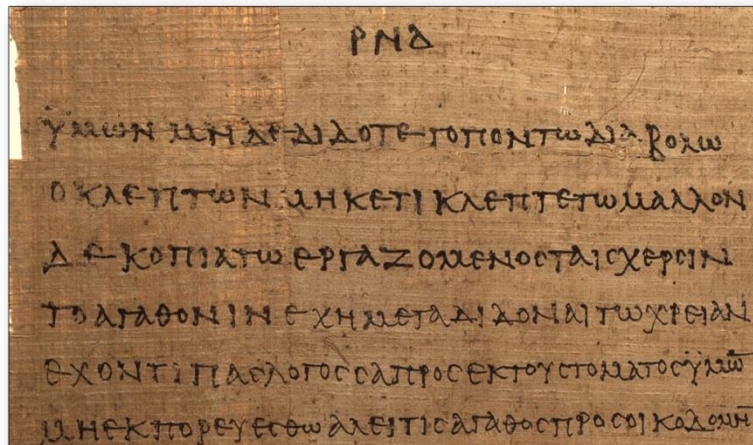 ΡΝΔ
ΥΜΩΝ ΜΗΔΕ ΔΙΔΟΤΕ ΤΟΠΟΝ ΤΩ ΔΙΑΒΟΛΩ
Ο ΚΛΕΠΤΩΝ ΜΗΚΕΤΙ ΚΛΕΠΤΕΤΩ ΜΑΛΛΟΝ
ΔΕ ΚΟΠΙΑΤΩ ΕΡΓΑΖΟΜΕΝΟϹ ΤΑΙϹ ΧΕΡϹΙΝ
ΤΟ ΑΓΑΘΟΝ ΙΝ ΕΧΗ ΜΕΤΑΔΙΔΟΝΑΙ ΤΩ ΧΡΕΙΑΝ
ΕΧΟΝΤΙ ΠΑϹ ΛΟΓΟϹ ϹΑΠΡΟϹ ΕΚ ΤΟΥ ϹΤΟΜΑΤΟϹ ΥΜΩ̅
ΜΗ ΕΚΠΟΡΕΥΕϹΘΩ ΑΛ ΕΙ ΤΙϹ ΑΓΑΘΟϹ ΠΡΟϹ ΟΙΚΟΔΟΜΗ̅